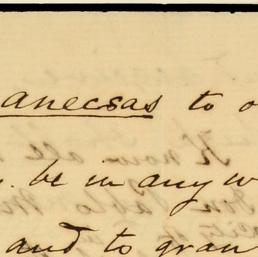 anecsas to o
be in any w
and to gran